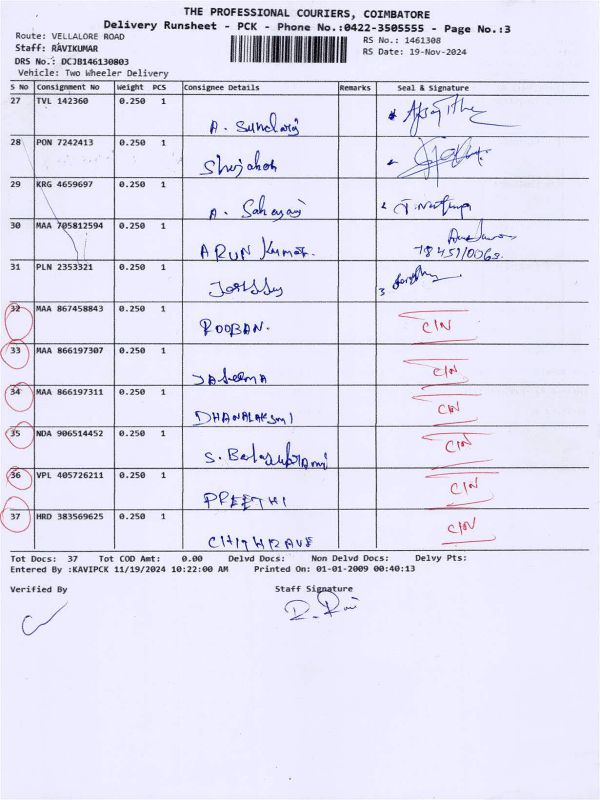 THE PROFESSIONAL COURIERS, COIMBATORE
Delivery Runsheet - PCK - Phone No.:0422-3505555 - Page No.:3
Route: VELLALORE ROAD
RS No.: 1461308
Staff: RAVIKUMAR
RS Date: 19-Nov-2024
DRS No.: DCJB146130803
Vehicle: Two Wheeler Delivery
S No Consignment No Weight PCS Consignee Details Remarks Seal & Signature
27 TVL 142360 0.250 1
A. Sundaraj
28 PON 7242413 0.250 1
29 KRG 4659697 0.250 1
A.
30 MAA 705812594 0.250 1
ARUN Kumar.
31 PLN 2353321 0.250 1
32 MAA 867458843 0.250 1
ROOBAN. C/N
33 MAA 866197307 0.250 1
JASeemA C/N
34 MAA 866197311 0.250 1
DHANALAKSMI C/N
35 NDA 906514452 0.250 1
S. C/N
36 VPL 405726211 0.250 1
PREETHI C/N
37 HRD 383569625 0.250 1
C/N
Tot Docs: 37 Tot COD Amt: 0.00 Delvd Docs: Non Delvd Docs: Delvy Pts:
Entered By :KAVIPCK 11/19/2024 10:22:00 AM Printed On: 01-01-2009 00:40:13
Verified By Staff Signature